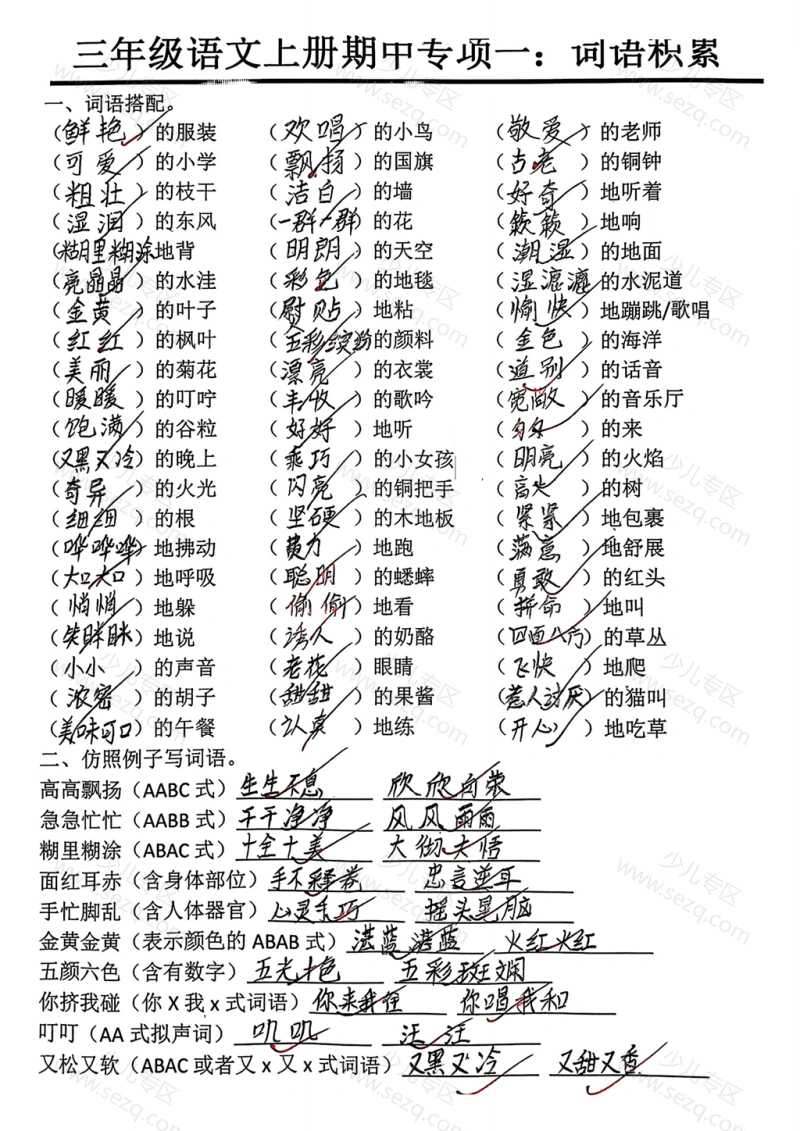 三年级语文上册期中专项一：词语积累
一、词语搭配。
（鲜艳）的服装 （欢唱）的小鸟 （敬爱）的老师
（可爱）的小学 （飘扬）的国旗 （古老）的铜钟
（粗壮）的枝干 （洁白）的墙 （好奇）地听着
（湿润）的东风 （一群一群）的花 （簌簌）地响
（糊里糊涂）地背 （明朗）的天空 （潮湿）的地面
（亮晶晶）的水洼 （彩色）的地毯 （湿漉漉）的水泥道
（金黄）的叶子 （熨贴）地粘 （愉快）地蹦跳/歌唱
（红红）的枫叶 （五彩缤纷）的颜料 （金色）的海洋
（美丽）的菊花 （漂亮）的衣裳 （道别）的话音
（暖暖）的叮咛 （丰收）的歌吟 （宽敞）的音乐厅
（饱满）的谷粒 （好好）地听 （匆匆）的来
（又黑又冷）的晚上 （乖巧）的小女孩 （明亮）的火焰
（奇异）的火光 （闪亮）的铜把手 （高大）的树
（细细）的根 （坚硬）的木地板 （紧紧）地包裹
（哗哗哗）地拂动 （费力）地跑 （满意）地舒展
（大口大口）地呼吸 （聪明）的蟋蟀 （勇敢）的红头
（悄悄）地躲 （偷偷）地看 （拼命）地叫
（笑眯眯）地说 （诱人）的奶酪 （四面八方）的草丛
（小小）的声音 （老花）眼睛 （飞快）地爬
（浓密）的胡子 （甜甜）的果酱 （惹人讨厌）的猫叫
（美味可口）的午餐 （认真）地练 （开心）地吃草
二、仿照例子写词语。
高高飘扬（AABC 式）生生不息 欣欣向荣
急急忙忙（AABB 式）干干净净 风风雨雨
糊里糊涂（ABAC 式）十全十美 大彻大悟
面红耳赤（含身体部位）手不释卷 忠言逆耳
手忙脚乱（含人体器官）心灵手巧 摇头晃脑
金黄金黄（表示颜色的 ABAB 式）湛蓝湛蓝 火红火红
五颜六色（含有数字）五光十色 五彩斑斓
你挤我碰（你 X 我 x 式词语）你来我往 你唱我和
叮叮（AA 式拟声词）叽叽 汪汪
又松又软（ABAC 或者又 x 又 x 式词语）又黑又冷 又甜又香
少儿专区
www.sezq.com